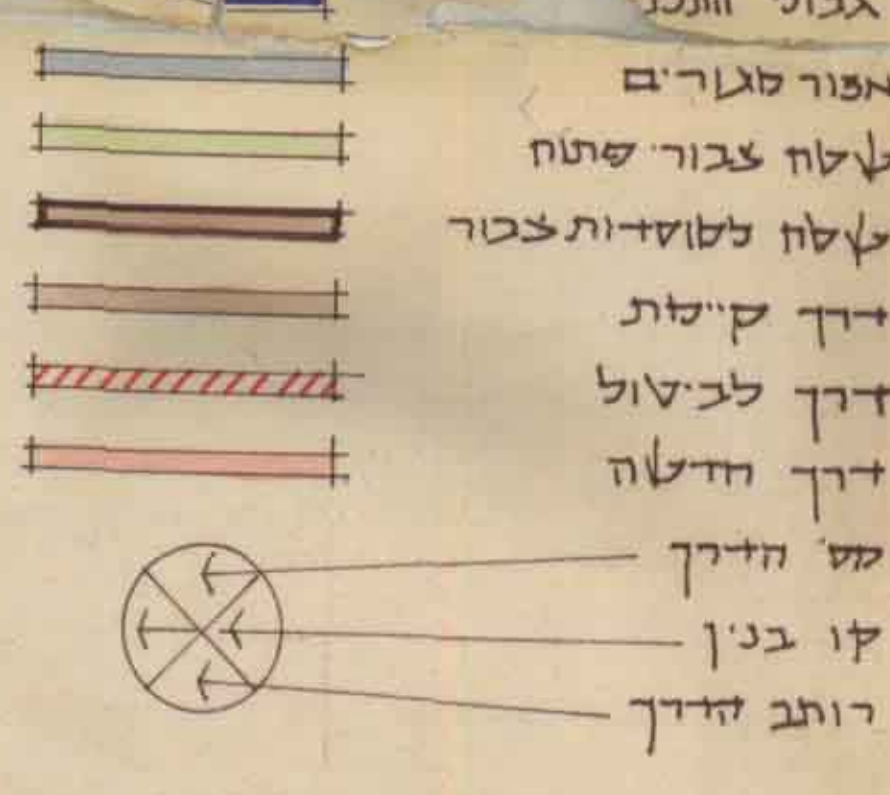 אזור מגורים
שטח צבורי פתוח
שטח למוסדות צבור
דרך קיימת
דרך לביטול
דרך חדשה
מס' הדרך
קו בנין
רוחב הדרך